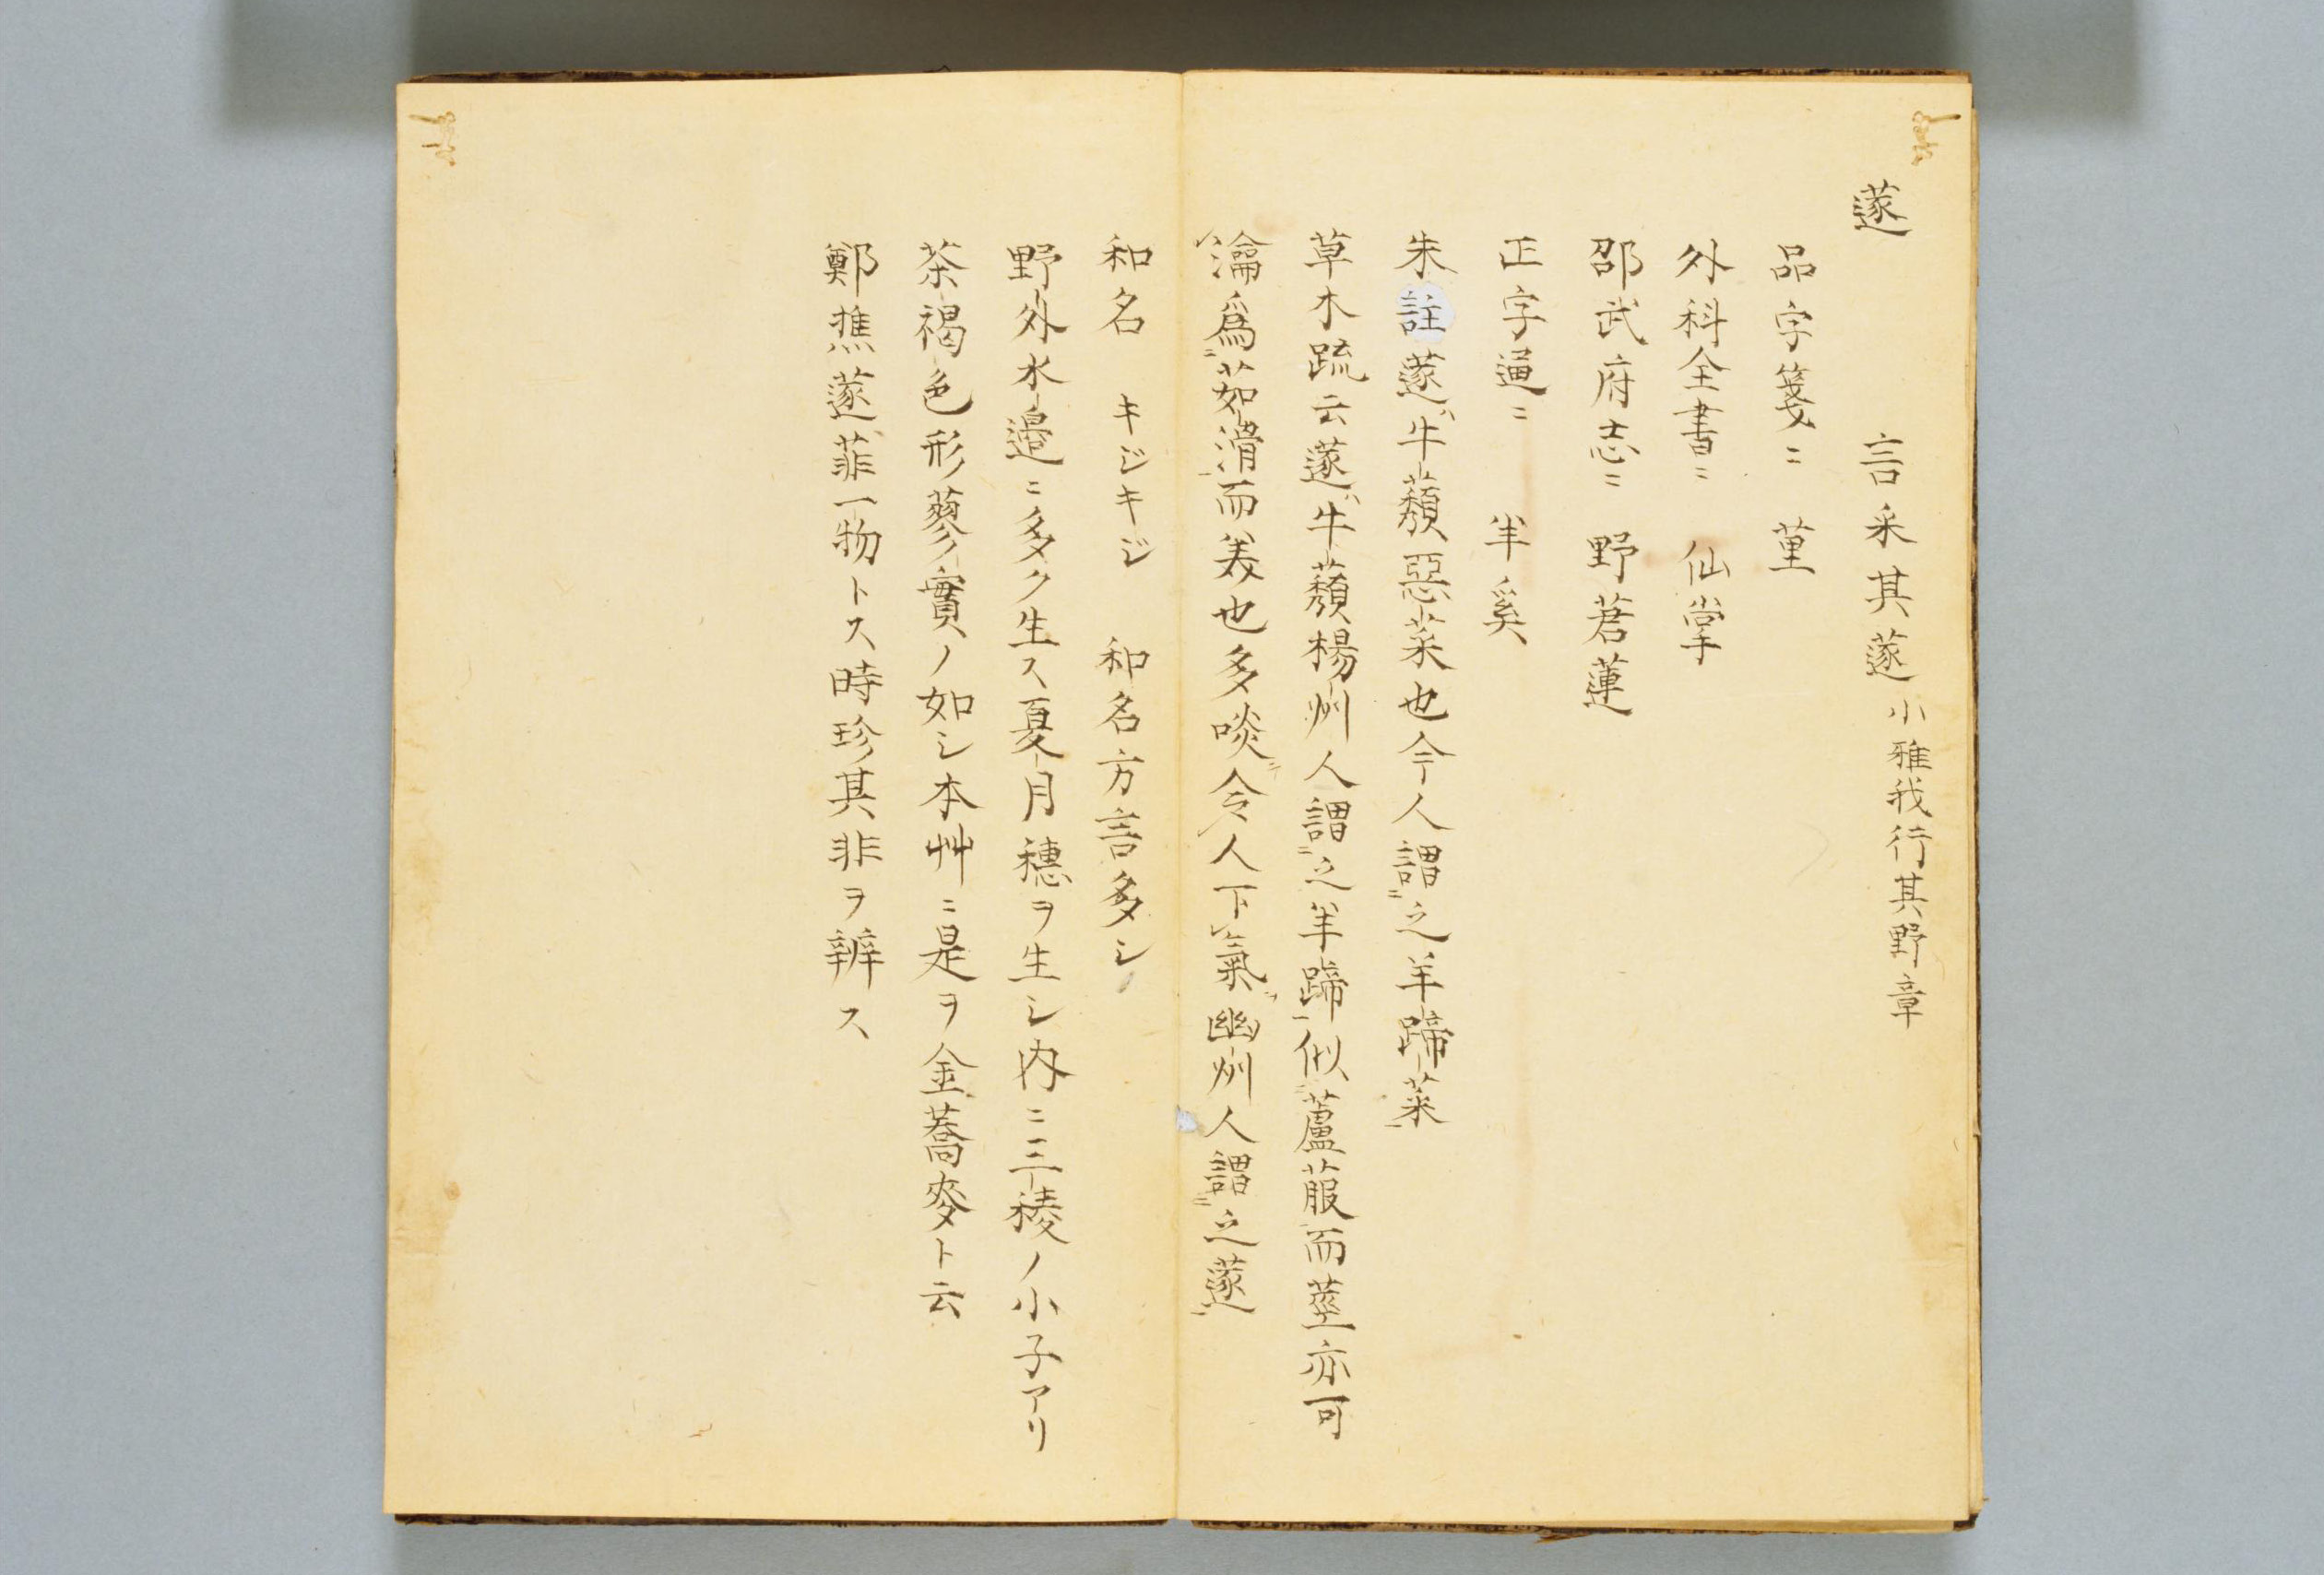 蓫
言采其蓫 小雅我行其野章
品字箋ニ 菫
外科全書ニ 仙掌
邵武府志ニ 野莙蓮
正字通ニ 羊奚
朱註蓫ハ牛蘈惡菜也今人謂之羊蹄菜
草木疏云蓫ハ牛蘈楊州人謂之羊蹄似蘆菔而莖亦可
瀹爲茹滑而美也多啖令人下氣幽州人謂之蓫
和名 キジキジ 和名方言多シ
野外水邉ニ多ク生ス夏月穗ヲ生シ内ニ三稜ノ小子アリ
茶褐色形蓼ノ實ノ如シ本艸ニ是ヲ金蕎麥ト云
鄭樵蓫菲一物トス時珍其非ヲ辨ス